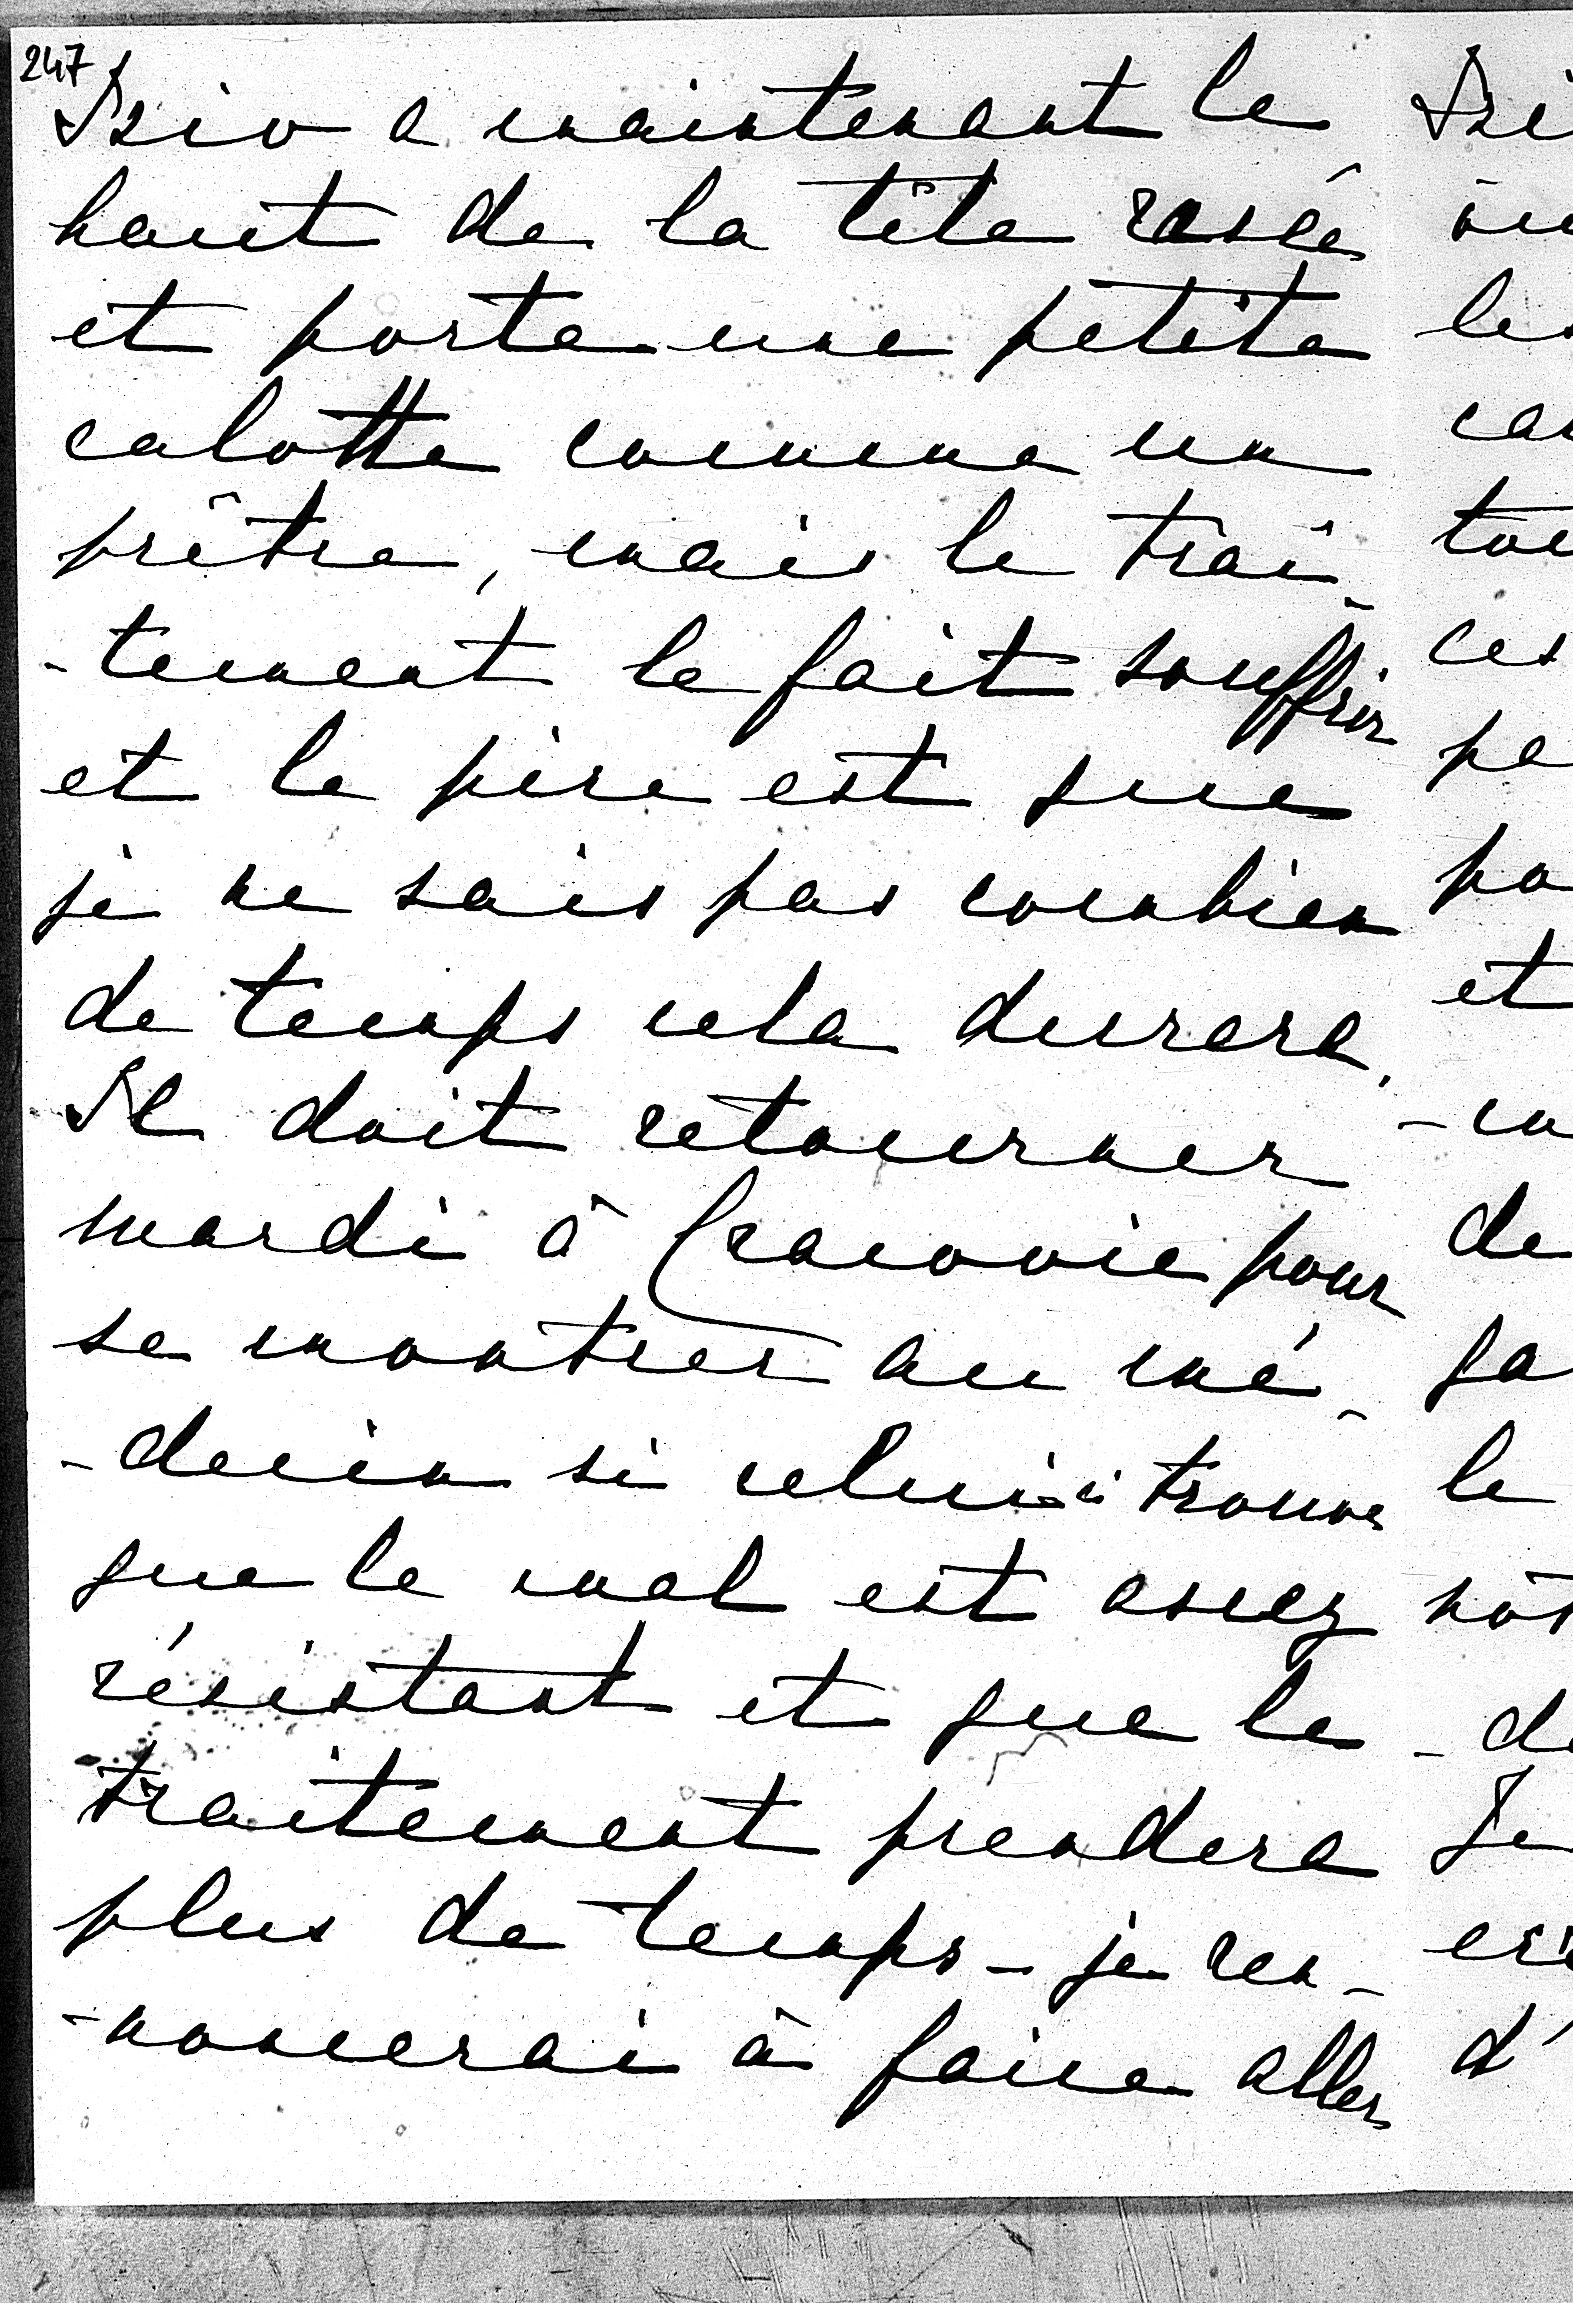 247
Izio a maintenant le
haut de la tête rasée
et porte une petite
calotte comme un
prêtre, mais le trai-
-tement le fait souffrir
et le pire est que
je ne sais pas combien
de temps cela durera.
Il doit retourner
mardi à Cracovie pour
se montrer au mé-
-decin si celui-ci trouve
que le mal est assez
résistant et que le
traitement prendera
plus de temps - je ren-
-noncerai à faire aller